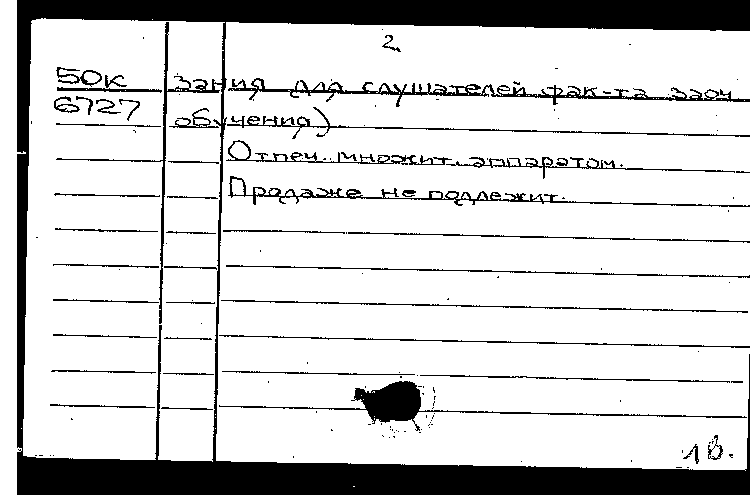 2
50к зания для слушателей фак-та заоч.
6727 обучения)
Отпеч. множит. аппаратом.
Продаже не подлежит.
1 в.